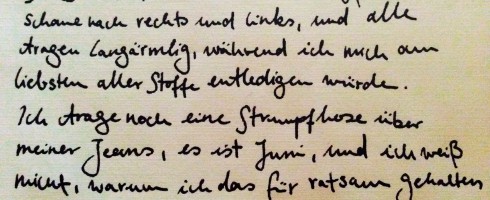 schaue nach rechts und links, und alle
tragen langärmlig, während ich mich am
liebsten aller Stoffe entledigen würde.
Ich trage noch eine Strumpfhose über
meiner Jeans, es ist Juni, und ich weiß
nicht, warum ich das für ratsam gehalten